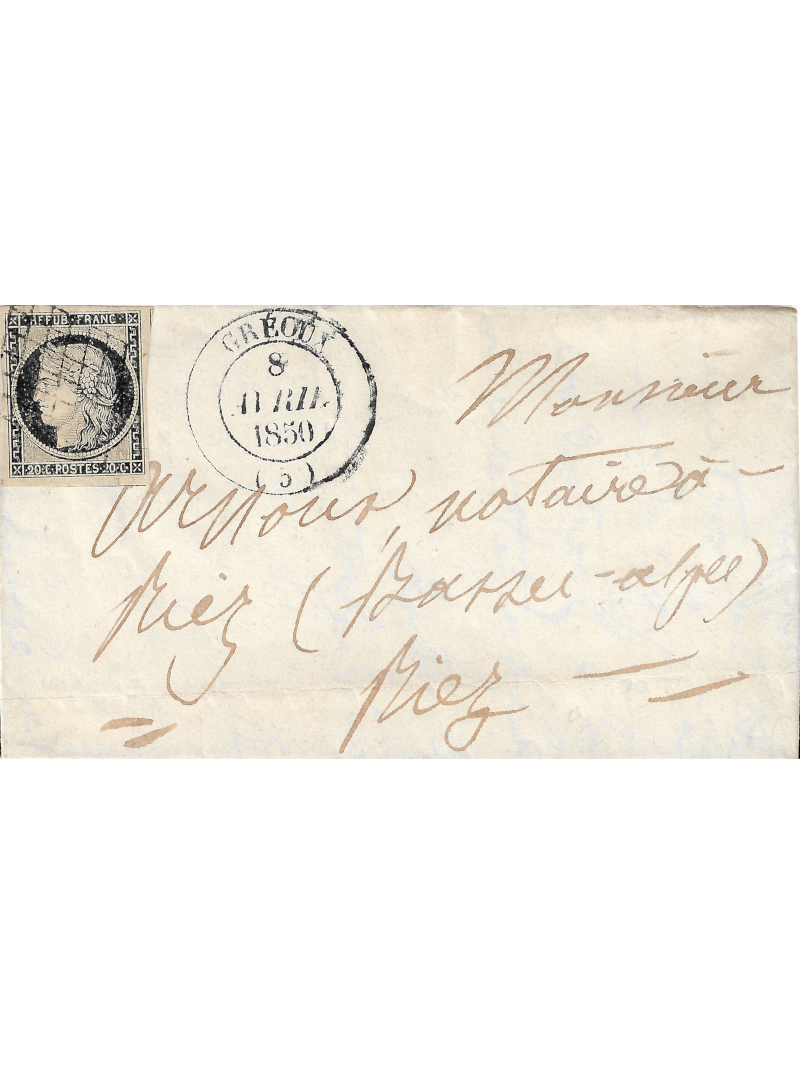 REPUB·FRANC·
20·C.POSTES.20·C
GRÉOUX
8
AVRIL
1850
(5)
Monsieur
Arnoux, notaire à
Riez (Basses-alpes)
Riez